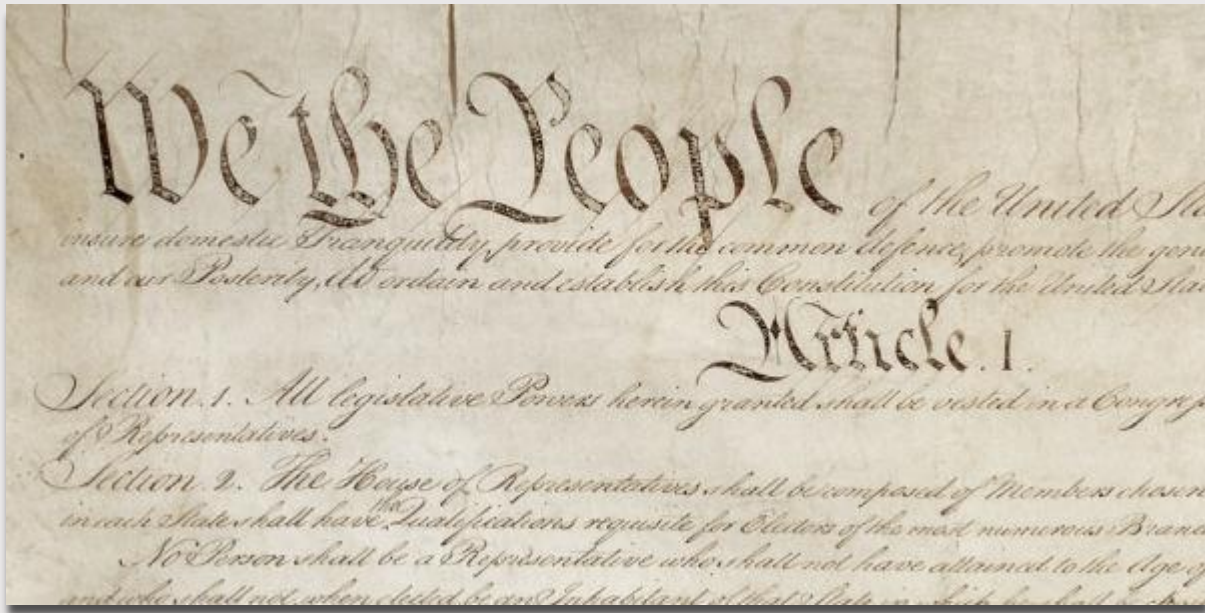 We the People of the United Sta
insure domestic Tranquility, provide for the common defence, promote the gene
and our Posterity, do ordain and establish this Constitution for the United Stat
Article. I.
Section. 1. All legislative Powers herein granted shall be vested in a Congres
of Representatives.
Section. 2. The House of Representatives shall be composed of Members chosen
in each State shall have the Qualifications requisite for Electors of the most numerous Branc
No Person shall be a Representative who shall not have attained to the Age of
and who shall not, when elected, be an Inhabitant of that State in which he shall